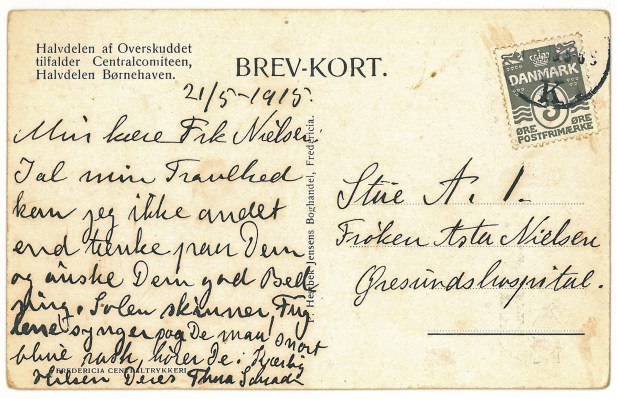 Halvdelen af Overskuddet
tilfalder Centralcomiteen,
Halvdelen Børnehaven.
BREV-KORT.
DANMARK
5
ØRE ØRE
POSTFRIMÆRKE
21/5-1915.
Min kære Frk Nielsen
I al min Travlhed
kan jeg ikke andet
end tænke paa Dem
og ønske Dem god Bed
ring. Solen skinner, Fug
lene synger og De maa snart
blive rask, hører De. Kjærlig
Hilsen Deres Thora
P. Hejrbek Jensens Boghandel, Fredericia.
Stue A. 1.
Frøken Asta Nielsen
Øresundshospital.
FREDERICIA CENTRALTRYKKERI